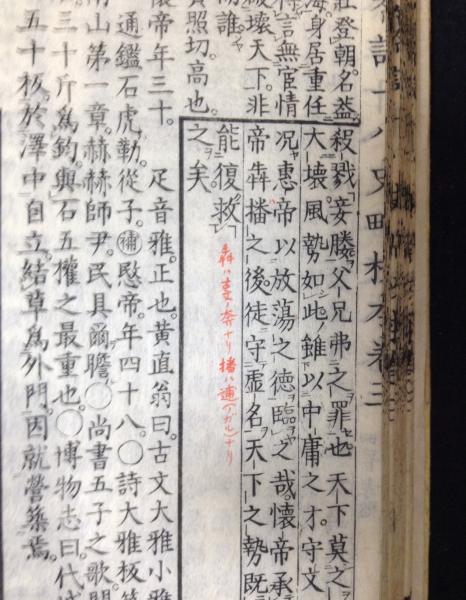 記十八史畧校本卷三
登朝名蓋
殺戮妾媵父兄弗之罪也天下莫之
海身居重任
大壞風勢如此雖以中庸之才守文
言無宦情
況惠帝以放蕩之德臨之哉懷帝承
破壞天下非
帝犇播之後徒守虛名天下之勢既
誰
能復救
之矣
犇ハ 奔ナリ播ハ逋(ノガル)ナリ
照切高也
懷帝年三十。 足音雅。正也。黃直翁曰古文大雅小雅
通鑑石虎勒從子。補愍帝。年四十八。○詩大雅板
南山第一章。赫赫師尹。民具爾瞻。○尚書五子之歌關
三十斤爲鈞。與石五權之最重也。○博物志曰。代城
五十板。於澤中自立。結草爲外門。因就營築焉。